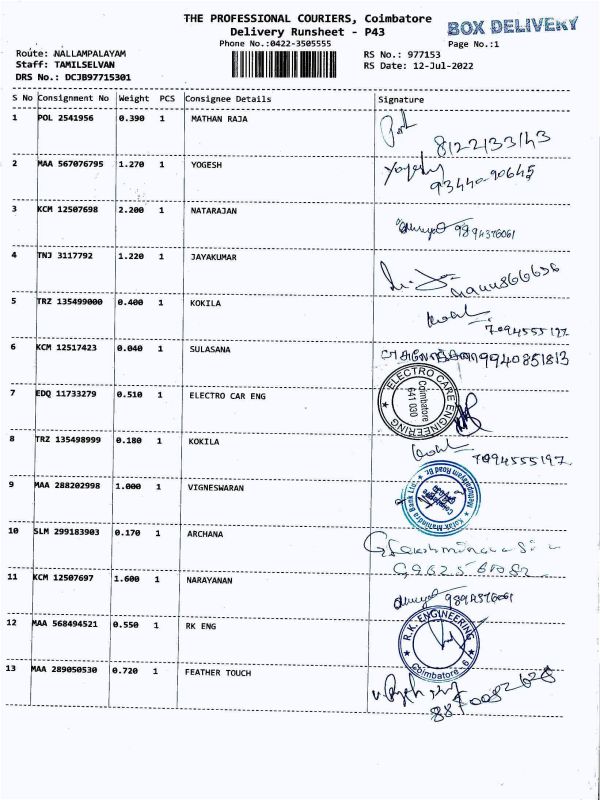 THE PROFESSIONAL COURIERS, Coimbatore
Delivery Runsheet - P43
BOX DELIVERY
Phone No.:0422-3505555
Page No.:1
Route: NALLAMPALAYAM
RS No.: 977153
Staff: TAMILSELVAN
RS Date: 12-Jul-2022
DRS No.: DCJB97715301
S No Consignment No Weight PCS Consignee Details Signature
1 POL 2541956 0.390 1 MATHAN RAJA
8122133143
2 MAA 567076795 1.270 1 YOGESH
93440-90645
3 KCM 12507698 2.200 1 NATARAJAN
9894376061
4 TNJ 3117792 1.220 1 JAYAKUMAR
5 TRZ 135499000 0.400 1 KOKILA
7094555197
6 KCM 12517423 0.040 1 SULASANA
9940851813
7 EDQ 11733279 0.510 1 ELECTRO CAR ENG
ELECTRO CARE ENGINEERING
Coimbatore
641 030
8 TRZ 135498999 0.180 1 KOKILA
7094555197
9 MAA 288202998 1.000 1 VIGNESWARAN
Kotak Mahindra Bank Ltd.
10 SLM 299183903 0.170 1 ARCHANA
11 KCM 12507697 1.600 1 NARAYANAN
9894376061
12 MAA 568494521 0.550 1 RK ENG
R.K. ENGINEERING
Coimbatore - 6
13 MAA 289050530 0.720 1 FEATHER TOUCH
8870082628